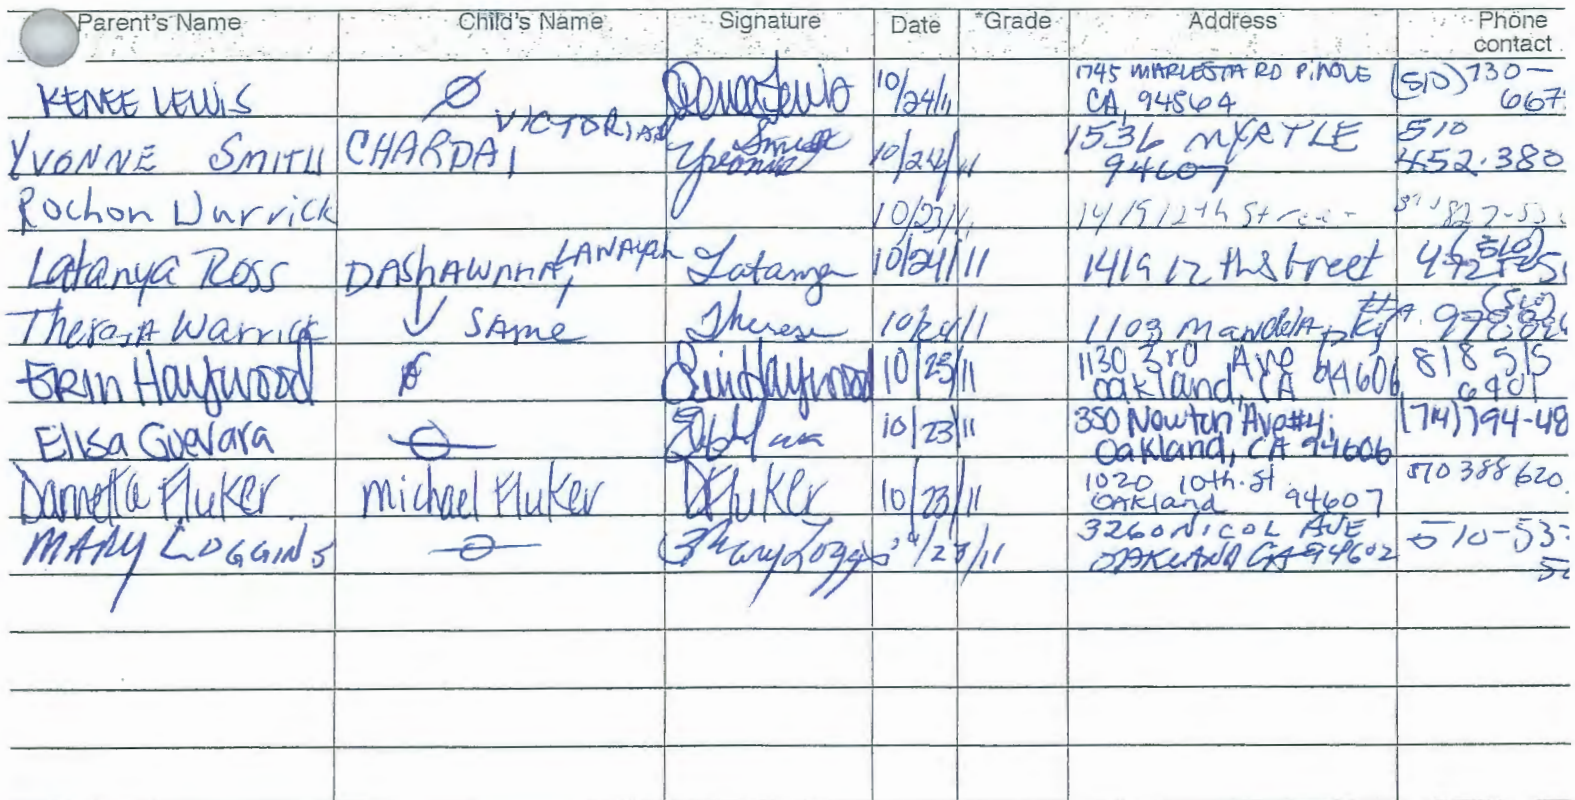 Parent's Name Child's Name Signature Date Grade Address Phone contact
KENEE LEWIS Ø 10/24/11 1745 MARLESTA RD PINOLE CA, 94564 (510) 730- 667
YVONNE SMITH CHARDAI, VICTORIAN Yvonne Smith 10/24/11 1536 MYRTLE 94607 510 452.380
Rochon Warrick 10/23/11 1419 12th Street 827-53
Latanya Ross DASHAWNNA, LANAYAH Latanya 10/24/11 1419 12th Street (510)
Theresa Warrick ↓ SAME Theresa 10/24/11 1103 Mandela pky #A (510)
ERIN Haywood Ø Erin Haywood 10/23/11 1130 3rd Ave Oakland, CA 94606 818 515 6901
Elisa Guevara Ø 10/23/11 350 Newton Ave #4, Oakland, CA 94606 (714) 794-48
Dannetta Fluker Michael Fluker DFluker 10/23/11 1020 10th St Oakland 94607 510 388 620
MARY LOGGINS Ø Mary Loggins 10/23/11 3260 NICOL AVE OAKLAND CA 94602 510-53